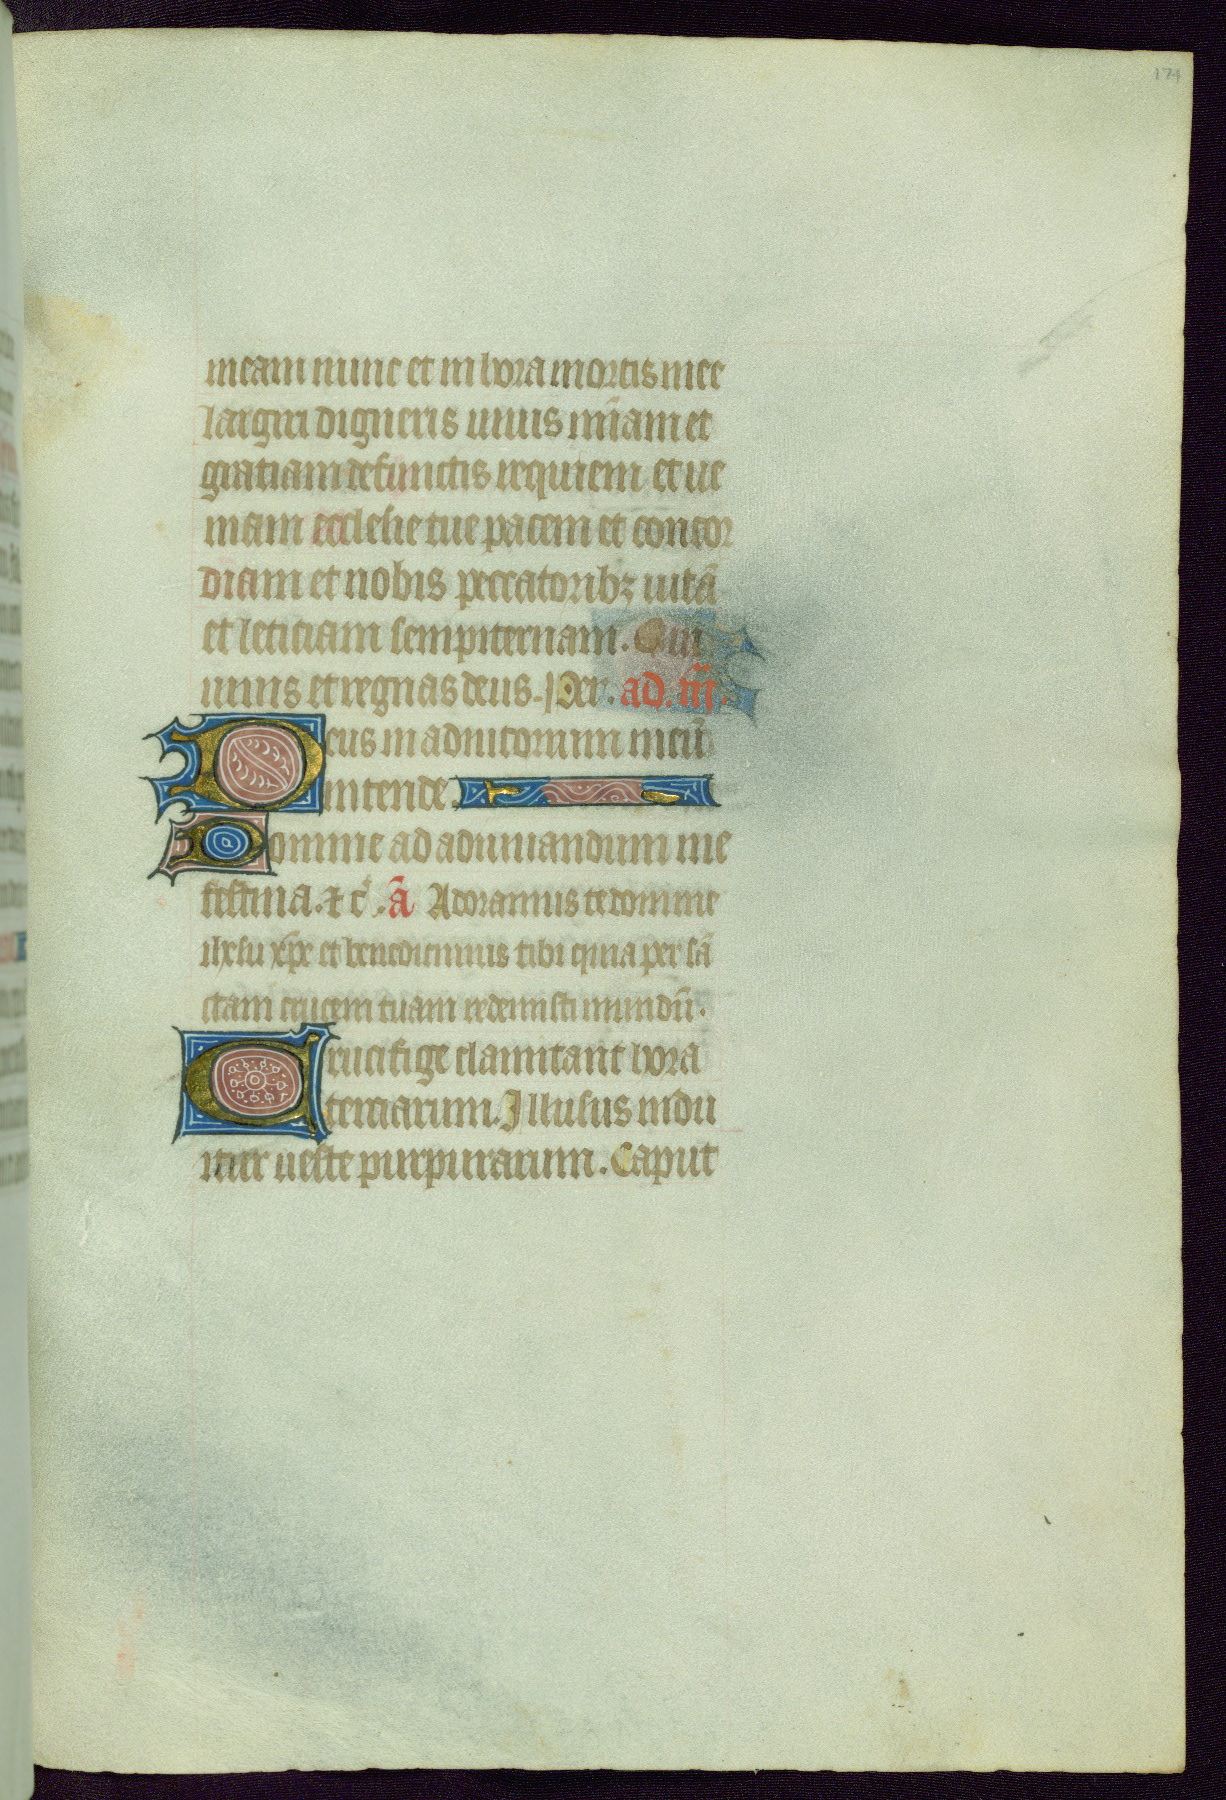 174
meam nunc et in hora mortis mee
largiri digneris uiuis mĩam et
gratiam defunctis requiem et ue
niam ecclesie tue pacem et concor
diam et nobis peccatoribꝫ uitã
et leticiam sempiternam. Qui
uiuis et regnas deus. Per. ad. iij.
Deus in adiutorium meũ
intende.
Domine ad adiuuandum me
festina. ⁊ c̃. ã Adoramus te domine
ihesu xp̃e et benedicimus tibi quia per sã
ctam crucem tuam redemisti mundũ.
Crucifige clamitant hora
terciarum. Illusus indu
itur ueste purpurarum. Caput